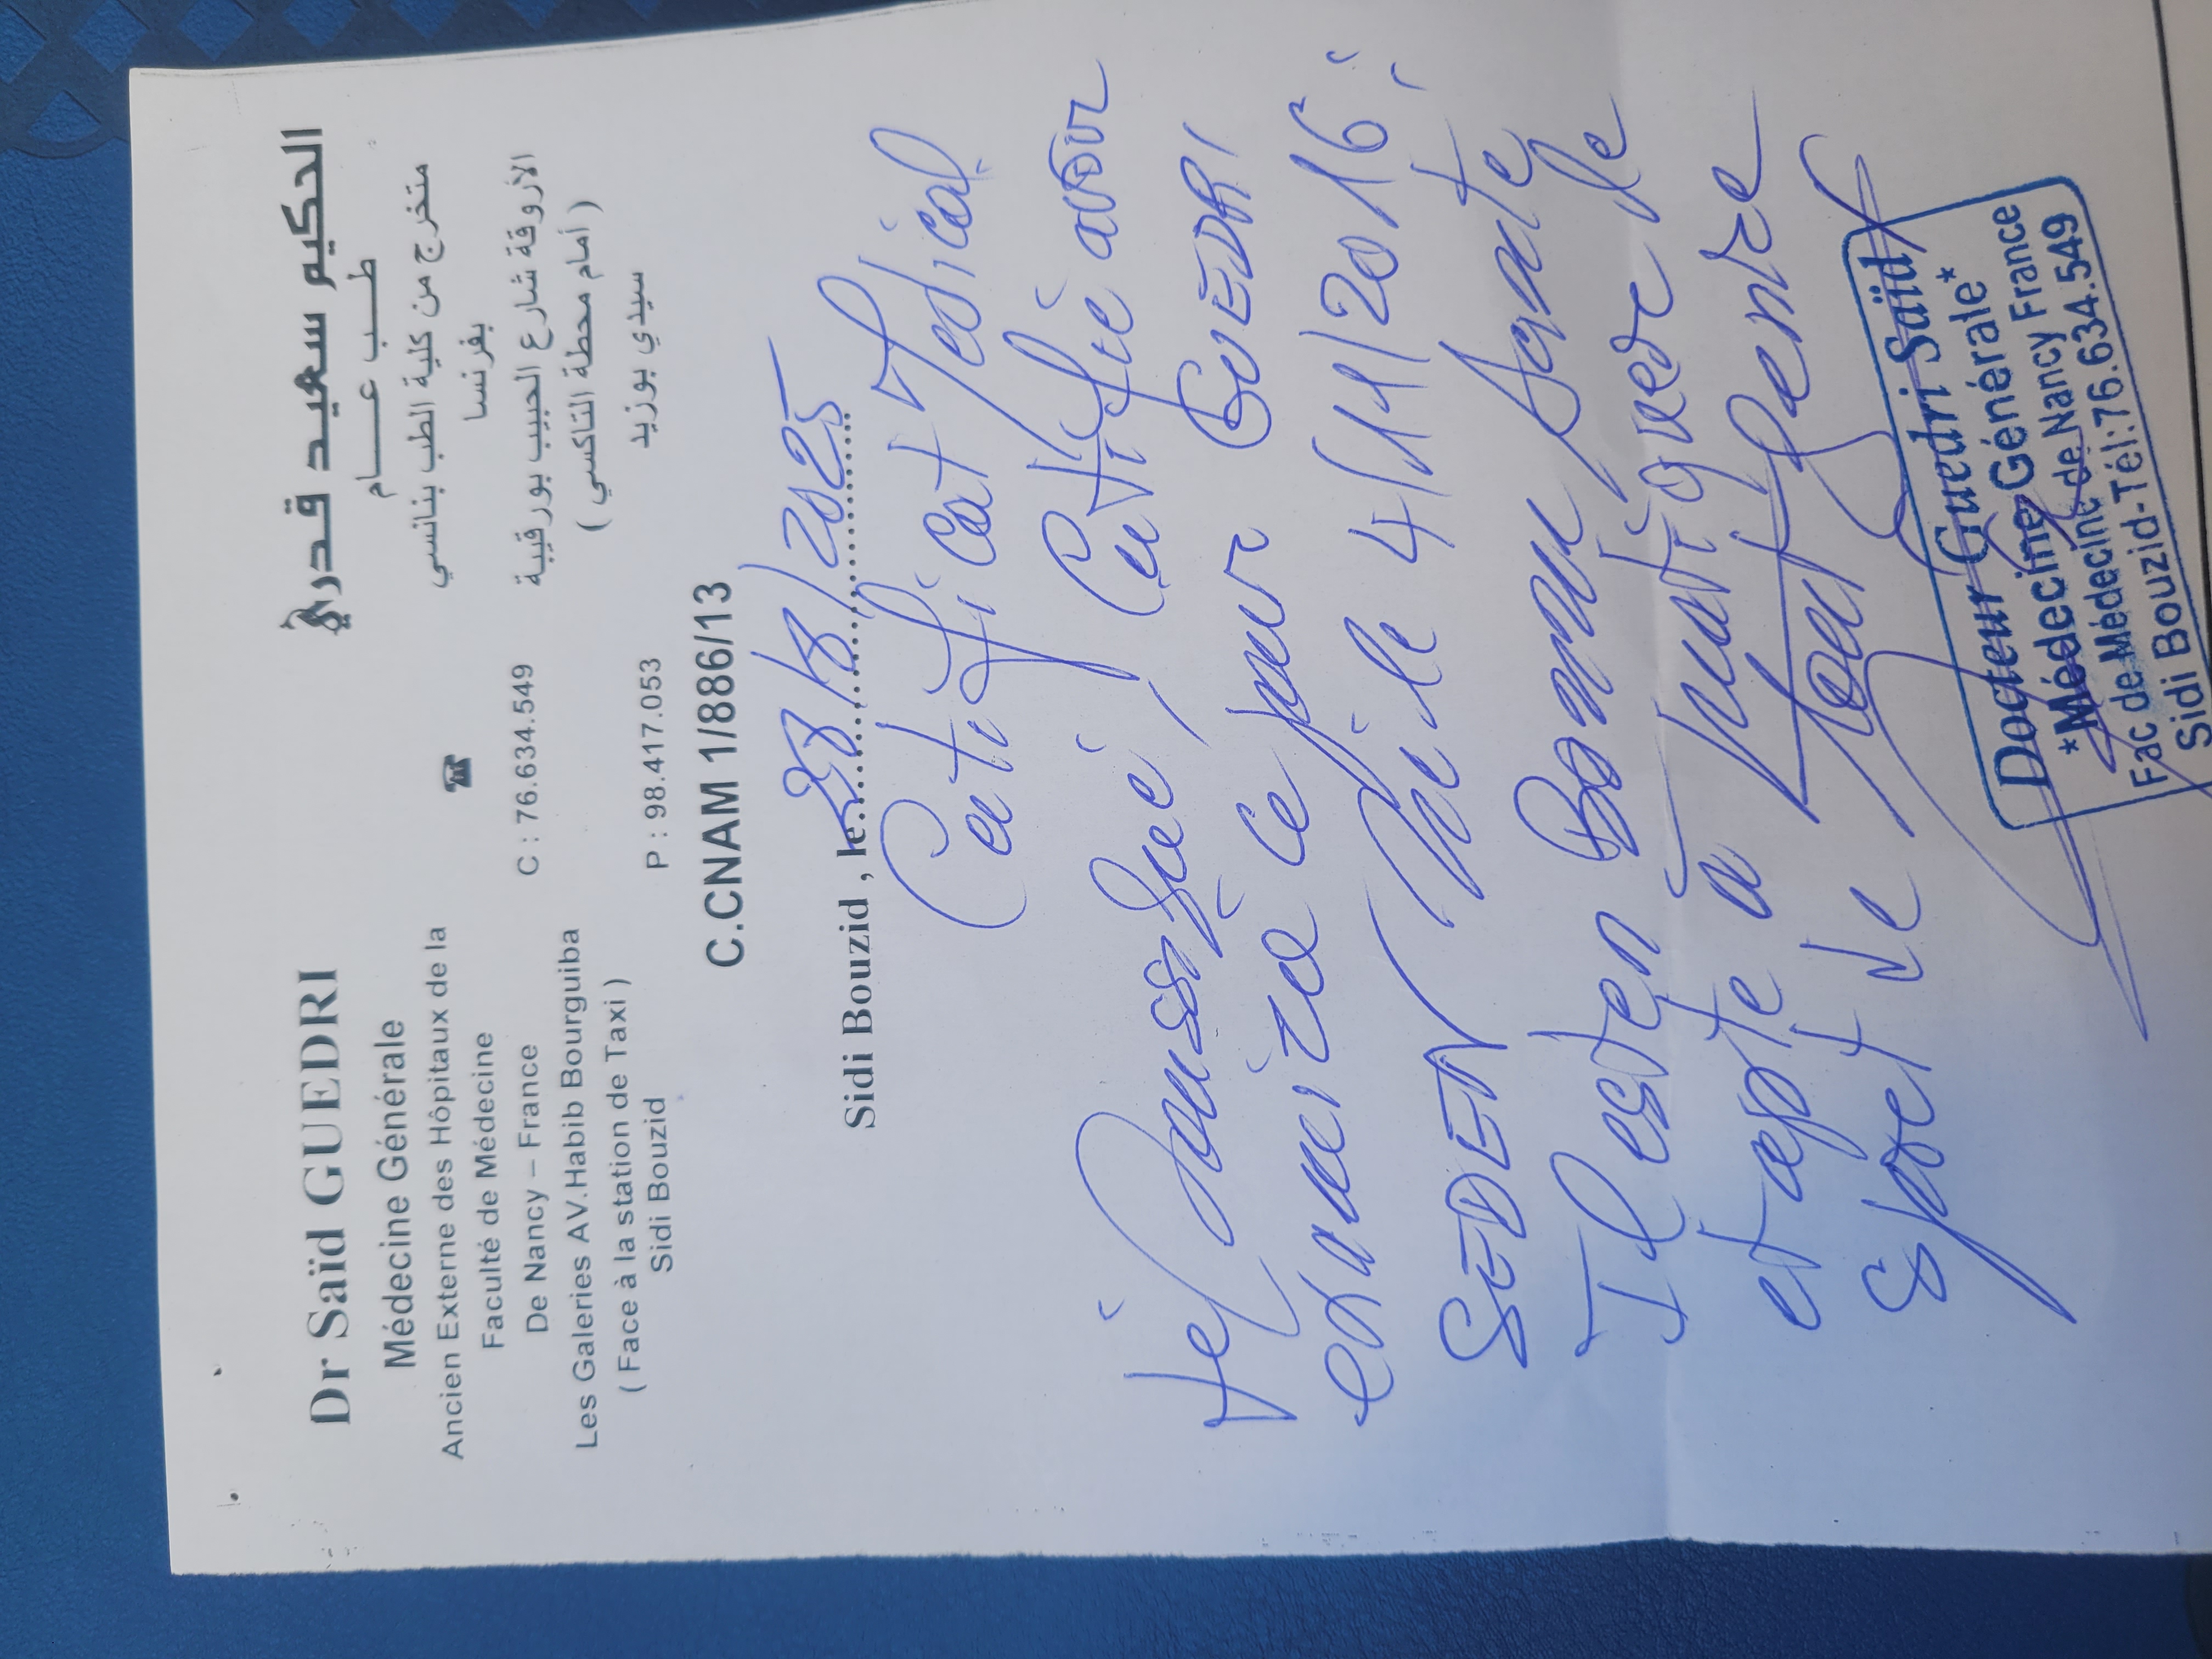 Dr Saïd GUEDRI
Médecine Générale
Ancien Externe des Hôpitaux de la
Faculté de Médecine
De Nancy – France
Les Galeries AV.Habib Bourguiba
( Face à la station de Taxi )
Sidi Bouzid
☎
C : 76.634.549
P : 98.417.053
الحكيم سعيد قدري
طـــب عـــــام
متخرج من كلية الطب بنانسي
بفرنسا
الأروقة شارع الحبيب بورقيبة
( أمام محطة التاكسي )
سيدي بوزيد
C.CNAM 1/886/13
Sidi Bouzid , le 28/8/2025
Certificat Medical
Je soussigné, Certifié avoir
examiné ce jour GUEDRI
SEDEN né le 4/11/2016,
Il est en Bonne Santé
et apte à pratiquer le
Sport de tout genre
Docteur Guedri Saïd
*Médecine Générale*
*Médecine de Nancy France
Fac de Médecine-Tél:76.634.549
Sidi Bouzid